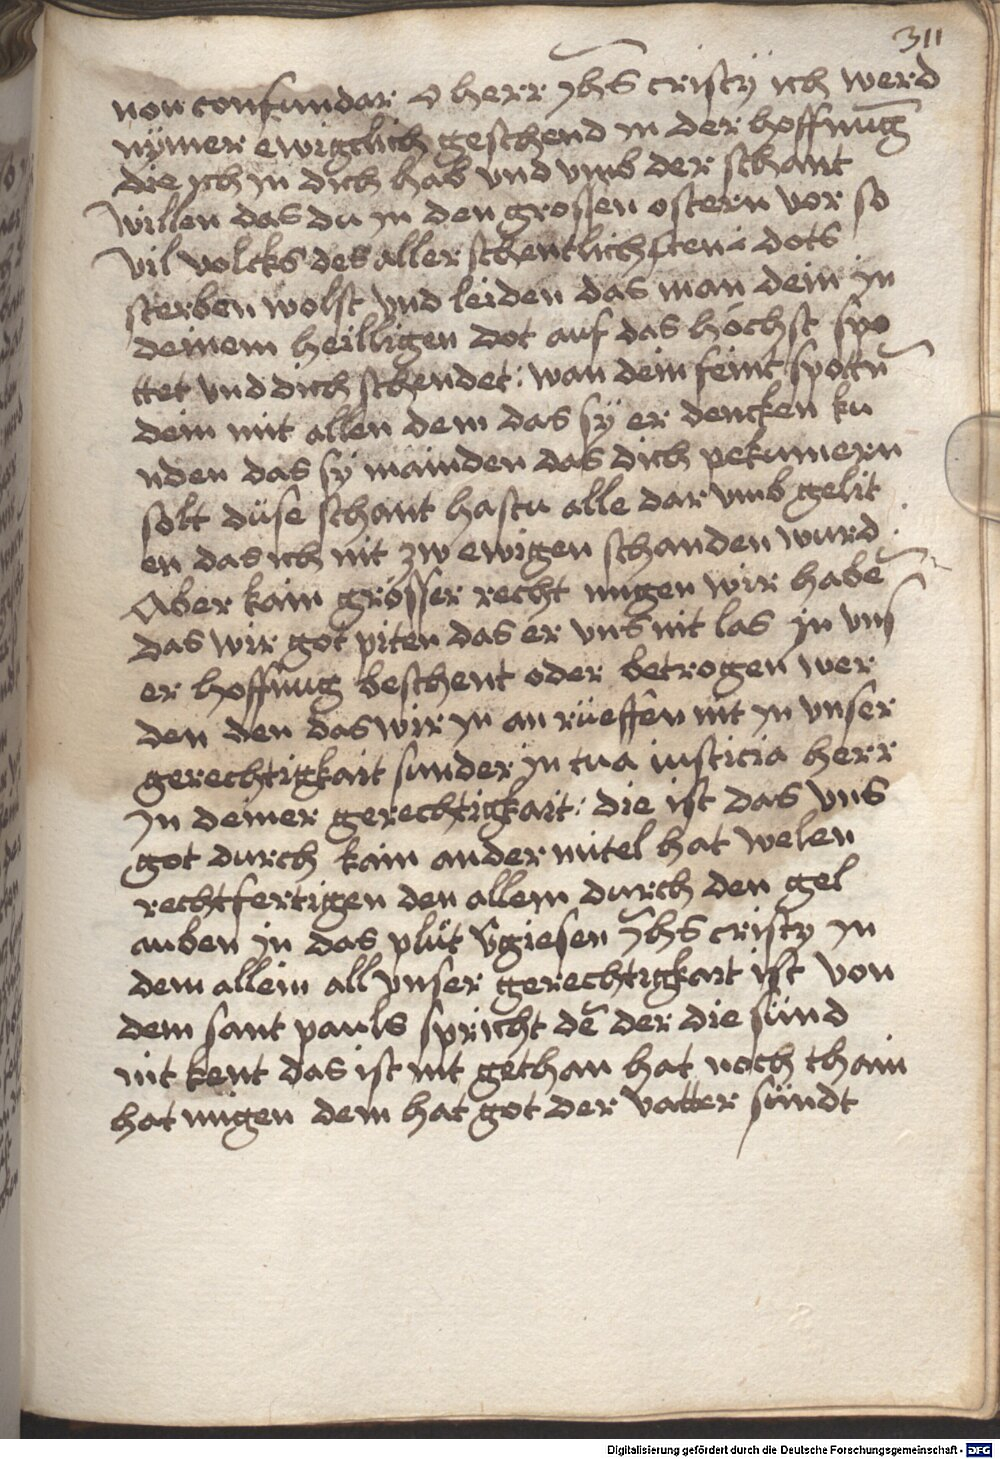 311
non confundar o herr Jh̄s cristÿ ich werd
nÿmer ewigclich geschend in der hoffnūg
die ich in dich hab vnd vmb der schant
willen das du in den grossen ostern vor so
vil volcks des aller schentlichsten dots
sterben wolst vnd leiden das man dein in
deinem heilligen dot auf das höchst spo
ttet vnd dich schendet: wan dein feint spottn̄
dein mit allen dem das sÿ er dencken ku
nden das sÿ mainden das dich pekumern
solt düse schant hastu alle dar vmb gelit
en das ich nit zw ewigen schanden wurd.
Aber kain grösser recht mügen wir habē
das wir got piten das er vns nit las in vns̄
er hoffnug beschent oder betrogen wer
den den das wir in an rüeffen nit in vnser
gerechtigkait sunder in tua iusticia herr
in deiner gerechtigkait: die ist das vns
got durch kain ander mitel hat welen
rechtfertigen den allein durch den gel
auben in das plüt v̄giesen Jh̄s cristy in
dem allein all vnser gerechtigkait ist von
dem sant pauls spricht dē der die sünd
nit kent das ist nit gethan hat noch thain
hat mügen dem hat got der vatter sündt
Digitalisierung gefördert durch die Deutsche Forschungsgemeinschaft - DFG